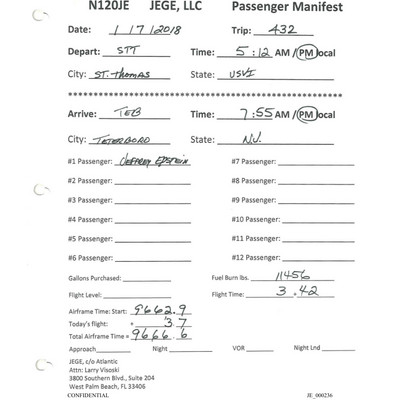 N120JE JEGE, LLC Passenger Manifest
Date: 1/7/2018 Trip: 432
Depart: STT Time: 5:12 AM / PM local
City: ST. THOMAS State: USVI
********************************************************************************
Arrive: TEB Time: 7:55 AM / PM local
City: TETERBORO State: N.J.
#1 Passenger: JEFFREY EPSTEIN #7 Passenger:
#2 Passenger: #8 Passenger:
#3 Passenger: #9 Passenger:
#4 Passenger: #10 Passenger:
#5 Passenger: #11 Passenger:
#6 Passenger: #12 Passenger:
Gallons Purchased: Fuel Burn lbs. 11456
Flight Level: Flight Time: 3.42
Airframe Time: Start: 9662.9
Today's flight: 3.7
Total Airframe Time = 9666.6
Approach Night VOR Night Lnd
JEGE, c/o Atlantic
Attn: Larry Visoski
3800 Southern Blvd., Suite 204
West Palm Beach, FL 33406
CONFIDENTIAL JE_000236